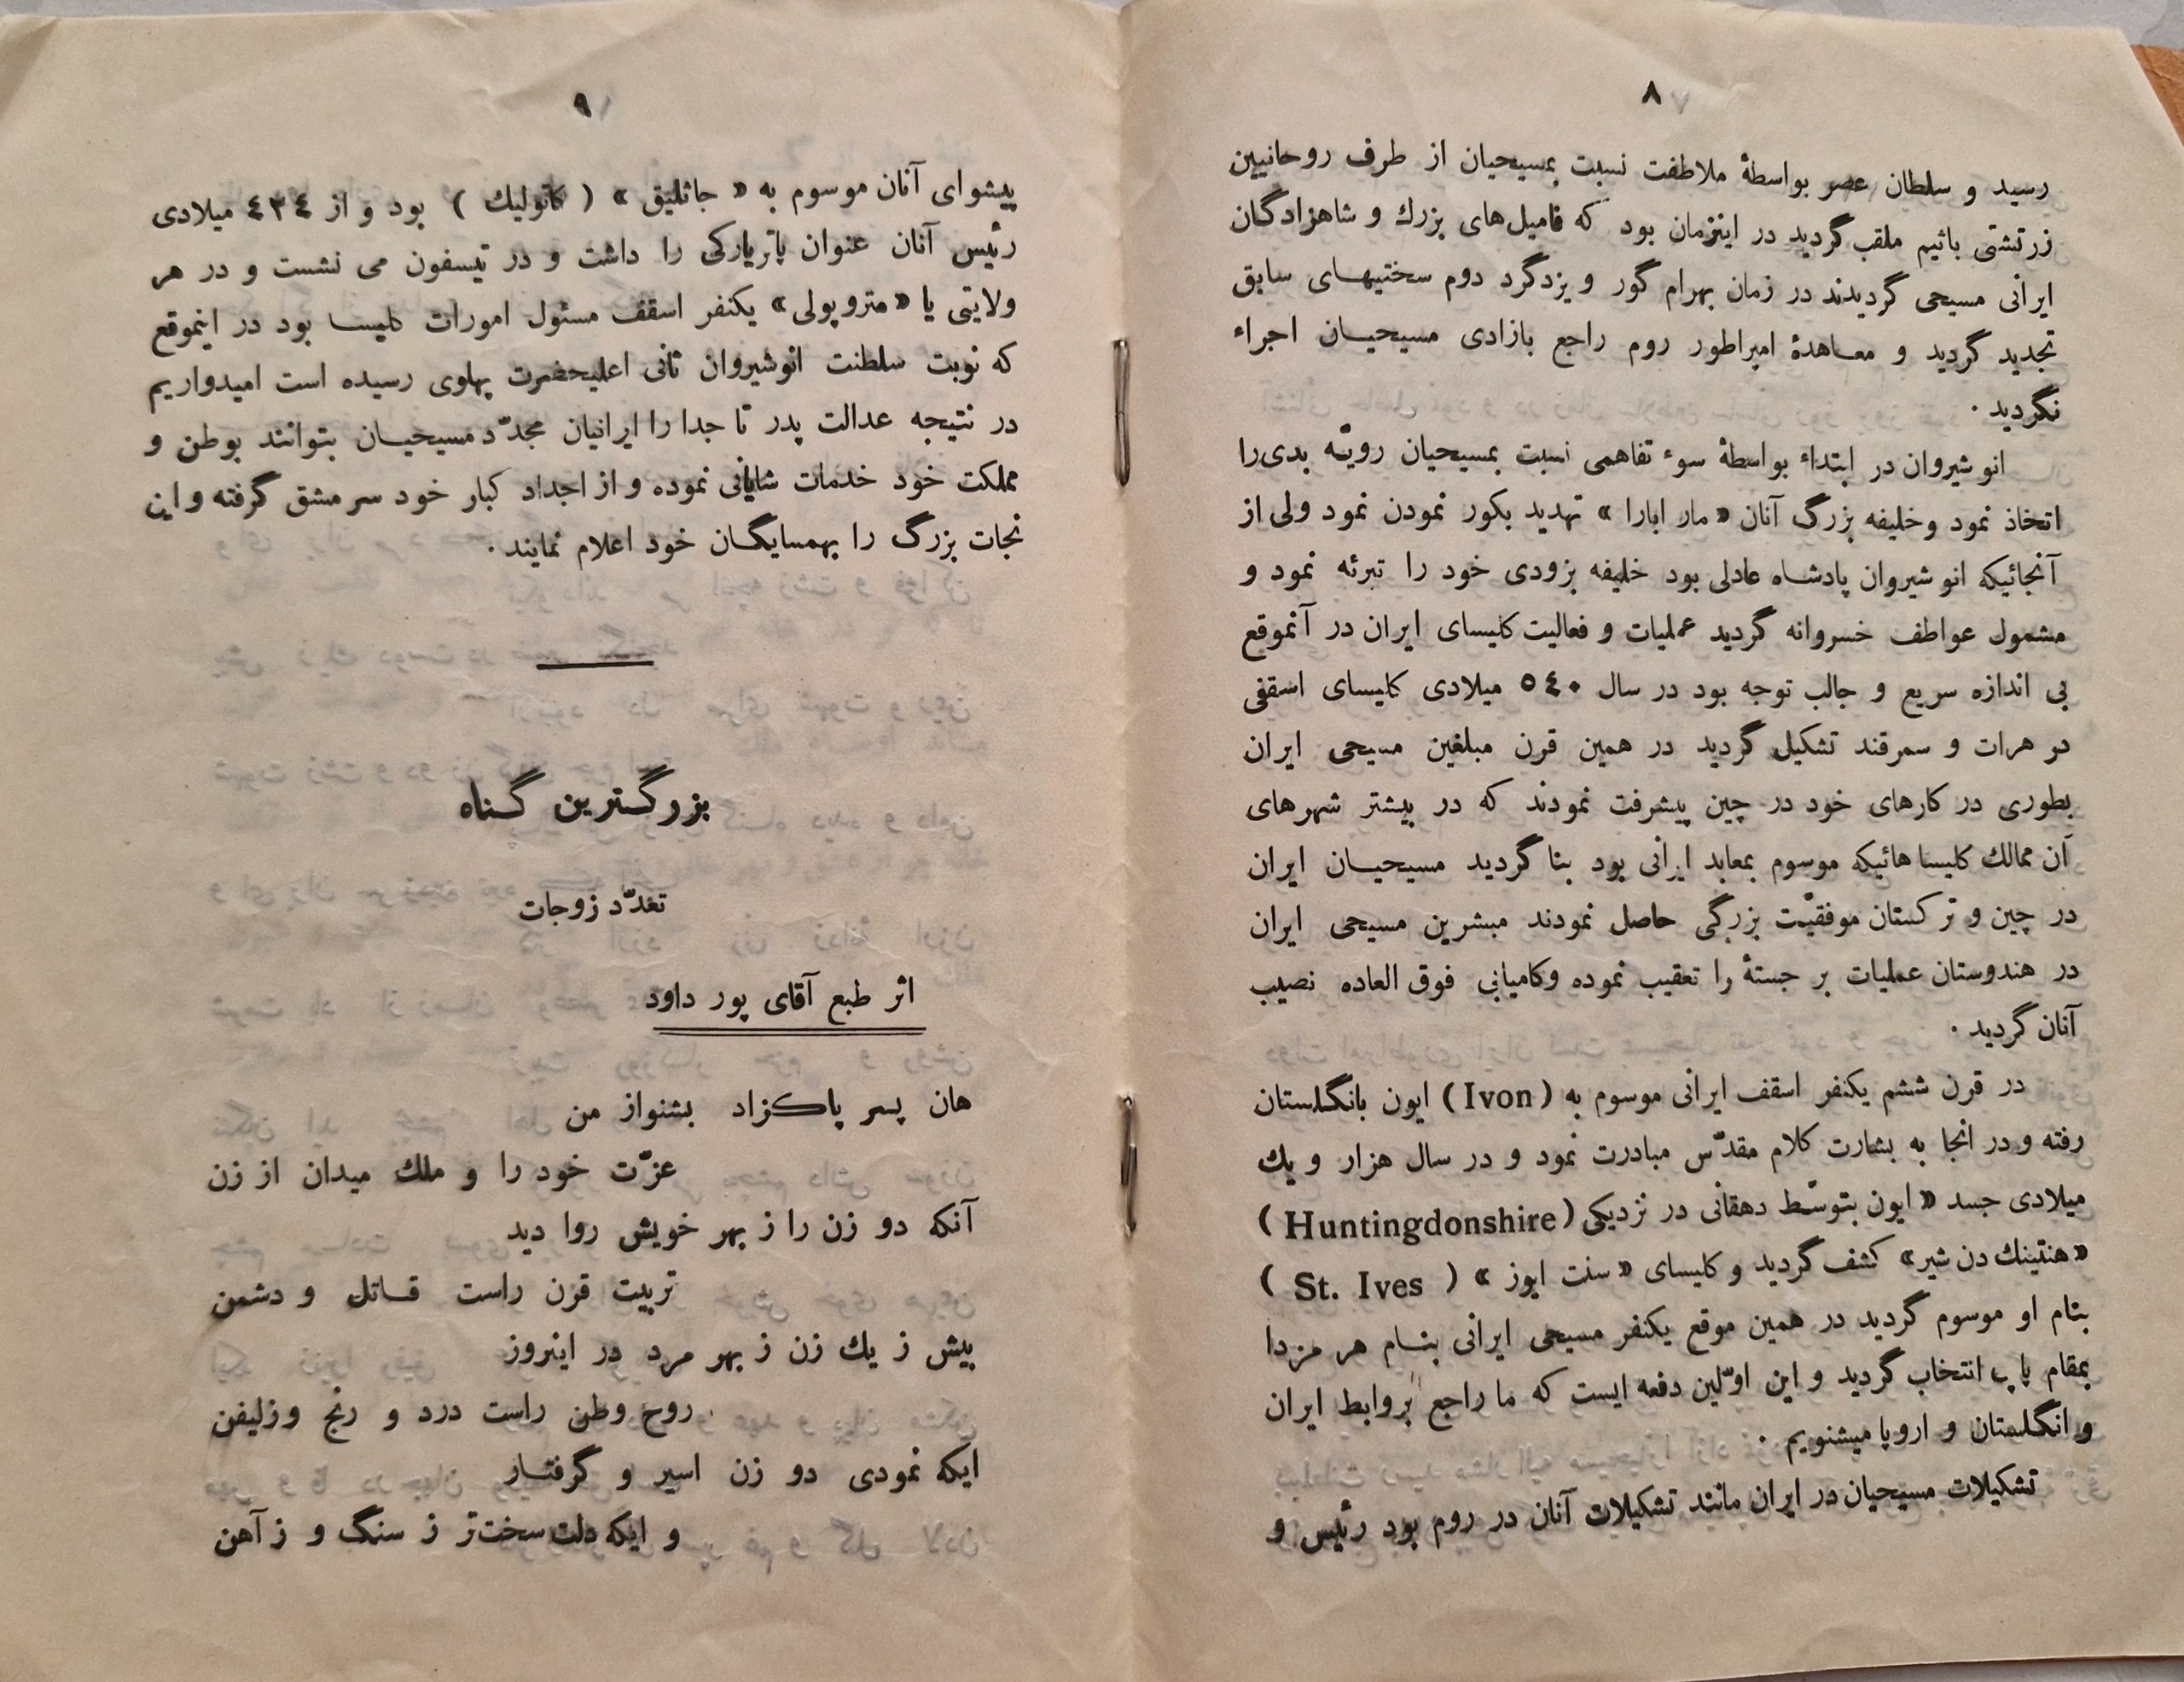 ۸
رسید و سلطان عصر بواسطهٔ ملاطفت نسبت بمسیحیان از طرف روحانیین
زرتشتی باثیم ملقب گردید در اینزمان بود که فامیل‌های بزرك و شاهزادگان
ایرانی مسیحی گردیدند در زمان بهرام گور و یزدگرد دوم سختیهای سابق
تجدید گردید و معاهدهٔ امپراطور روم راجع بازادی مسیحیان اجراء
نگردید .
انوشیروان در ابتداء بواسطهٔ سوء تفاهمی نسبت بمسیحیان رویّه بدی‌را
اتخاذ نمود وخلیفه بزرگ آنان «مار ابارا» تهدید بکور نمودن نمود ولی از
آنجائیکه انوشیروان پادشاه عادلی بود خلیفه بزودی خود را تبرئه نمود و
مشمول عواطف خسروانه گردید عملیات و فعالیت کلیسای ایران در آنموقع
بی اندازه سریع و جالب توجه بود در سال ٥٤٠ میلادی کلیسای اسقفی
در هرات و سمرقند تشکیل گردید در همین قرن مبلغین مسیحی ایران
بطوری در کارهای خود در چین پیشرفت نمودند که در بیشتر شهرهای
آن ممالك کلیساهائیکه موسوم بمعابد ایرانی بود بنا گردید مسیحیان ایران
در چین و ترکستان موفقیّت بزرگی حاصل نمودند مبشرین مسیحی ایران
در هندوستان عملیات بر جستهٔ را تعقیب نموده وکامیابی فوق العاده نصیب
آنان گردید .
در قرن ششم یکنفر اسقف ایرانی موسوم به (Ivon) ایون بانگلستان
رفته و در انجا به بشارت کلام مقدّس مبادرت نمود و در سال هزار و یك
میلادی جسد «ایون بتوسّط دهقانی در نزدیکی (Huntingdonshire)
«هنتینك دن شیر» کشف گردید و کلیسای «سنت ایوز» (St. Ives)
بنام او موسوم گردید در همین موقع یکنفر مسیحی ایرانی بنام هرمزدا
بمقام پاپ انتخاب گردید و این اوّلین دفعه ایست که ما راجع بروابط ایران
و انگلستان و اروپا میشنویم .
تشکیلات مسیحیان در ایران مانند تشکیلات آنان در روم بود رئیس و
۹
پیشوای آنان موسوم به «جاثلیق» (کاتولیك) بود و از ٤٢٤ میلادی
رئیس آنان عنوان پاتریارکی را داشت و در تیسفون می نشست و در هر
ولایتی یا «متروپولی» یکنفر اسقف مسئول امورات کلیسا بود در اینموقع
که نوبت سلطنت انوشیروان ثانی اعلیحضرت پهلوی رسیده است امیدواریم
در نتیجه عدالت پدر تاجدار ایرانیان مجدّد مسیحیان بتوانند بوطن و
مملکت خود خدمات شایانی نموده و از اجداد کبار خود سرمشق گرفته و این
نجات بزرگ را بهمسایگان خود اعلام نمایند .
بزرگترین گناه
تعدّد زوجات
اثر طبع آقای پور داود
هان پسر پاکزاد بشنواز من
عزّت خود را و ملك میدان از زن
آنکه دو زن را ز بهر خویش روا دید
تربیت قرن راست قاتل و دشمن
بیش ز یك زن ز بهر مرد در اینروز
روح وطن راست درد و رنج وزلیفن
ایکه نمودی دو زن اسیر و گرفتار
و ایکه دلت سخت‌تر ز سنگ و ز آهن